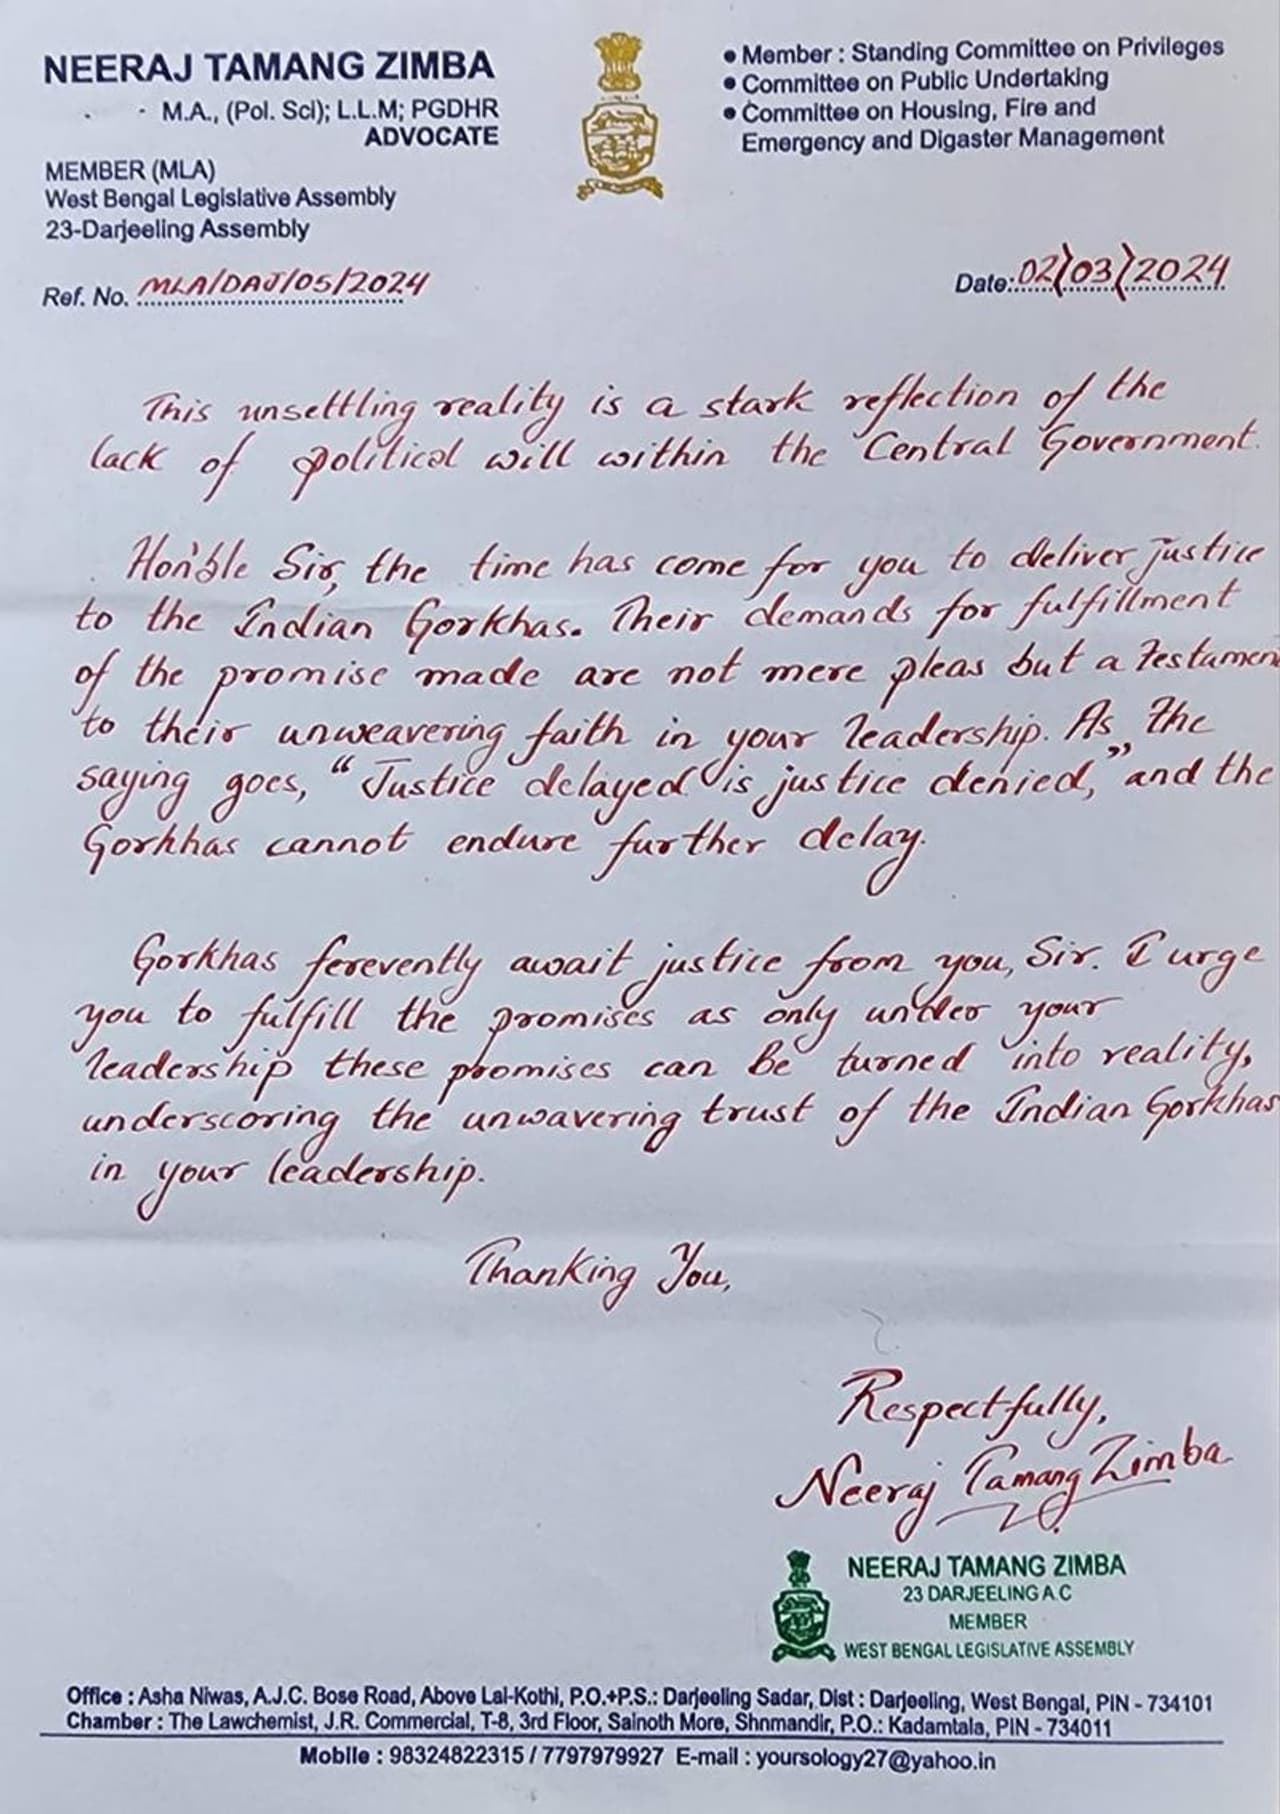 NEERAJ TAMANG ZIMBA
M.A., (Pol. Sci); L.L.M; PGDHR
ADVOCATE
MEMBER (MLA)
West Bengal Legislative Assembly
23-Darjeeling Assembly
Ref. No. MLA/DAJ/05/2024
• Member : Standing Committee on Privileges
• Committee on Public Undertaking
• Committee on Housing, Fire and
Emergency and Digaster Management
Date: 02/03/2024
This unsettling reality is a stark reflection of the
lack of political will within the Central Government.
Hon'ble Sir, the time has come for you to deliver justice
to the Indian Gorkhas. Their demands for fulfillment
of the promise made are not mere pleas but a testamen
to their unweavering faith in your leadership. As the
saying goes, "Justice delayed is justice denied," and the
Gorkhas cannot endure further delay.
Gorkhas ferevently await justice from you, Sir. I urge
you to fulfill the promises as only under your
leadership these promises can be turned into reality,
underscoring the unwavering trust of the Indian Gorkhas
in your leadership.
Thanking You,
Respectfully,
Neeraj Tamang Zimba
NEERAJ TAMANG ZIMBA
23 DARJEELING A.C
MEMBER
WEST BENGAL LEGISLATIVE ASSEMBLY
Office : Asha Niwas, A.J.C. Bose Road, Above Lal-Kothi, P.O.+P.S.: Darjeeling Sadar, Dist : Darjeeling, West Bengal, PIN - 734101
Chamber : The Lawchemist, J.R. Commercial, T-8, 3rd Floor, Sainoth More, Shnmandir, P.O.: Kadamtala, PIN - 734011
Mobile : 98324822315 / 7797979927 E-mail : yoursology27@yahoo.in